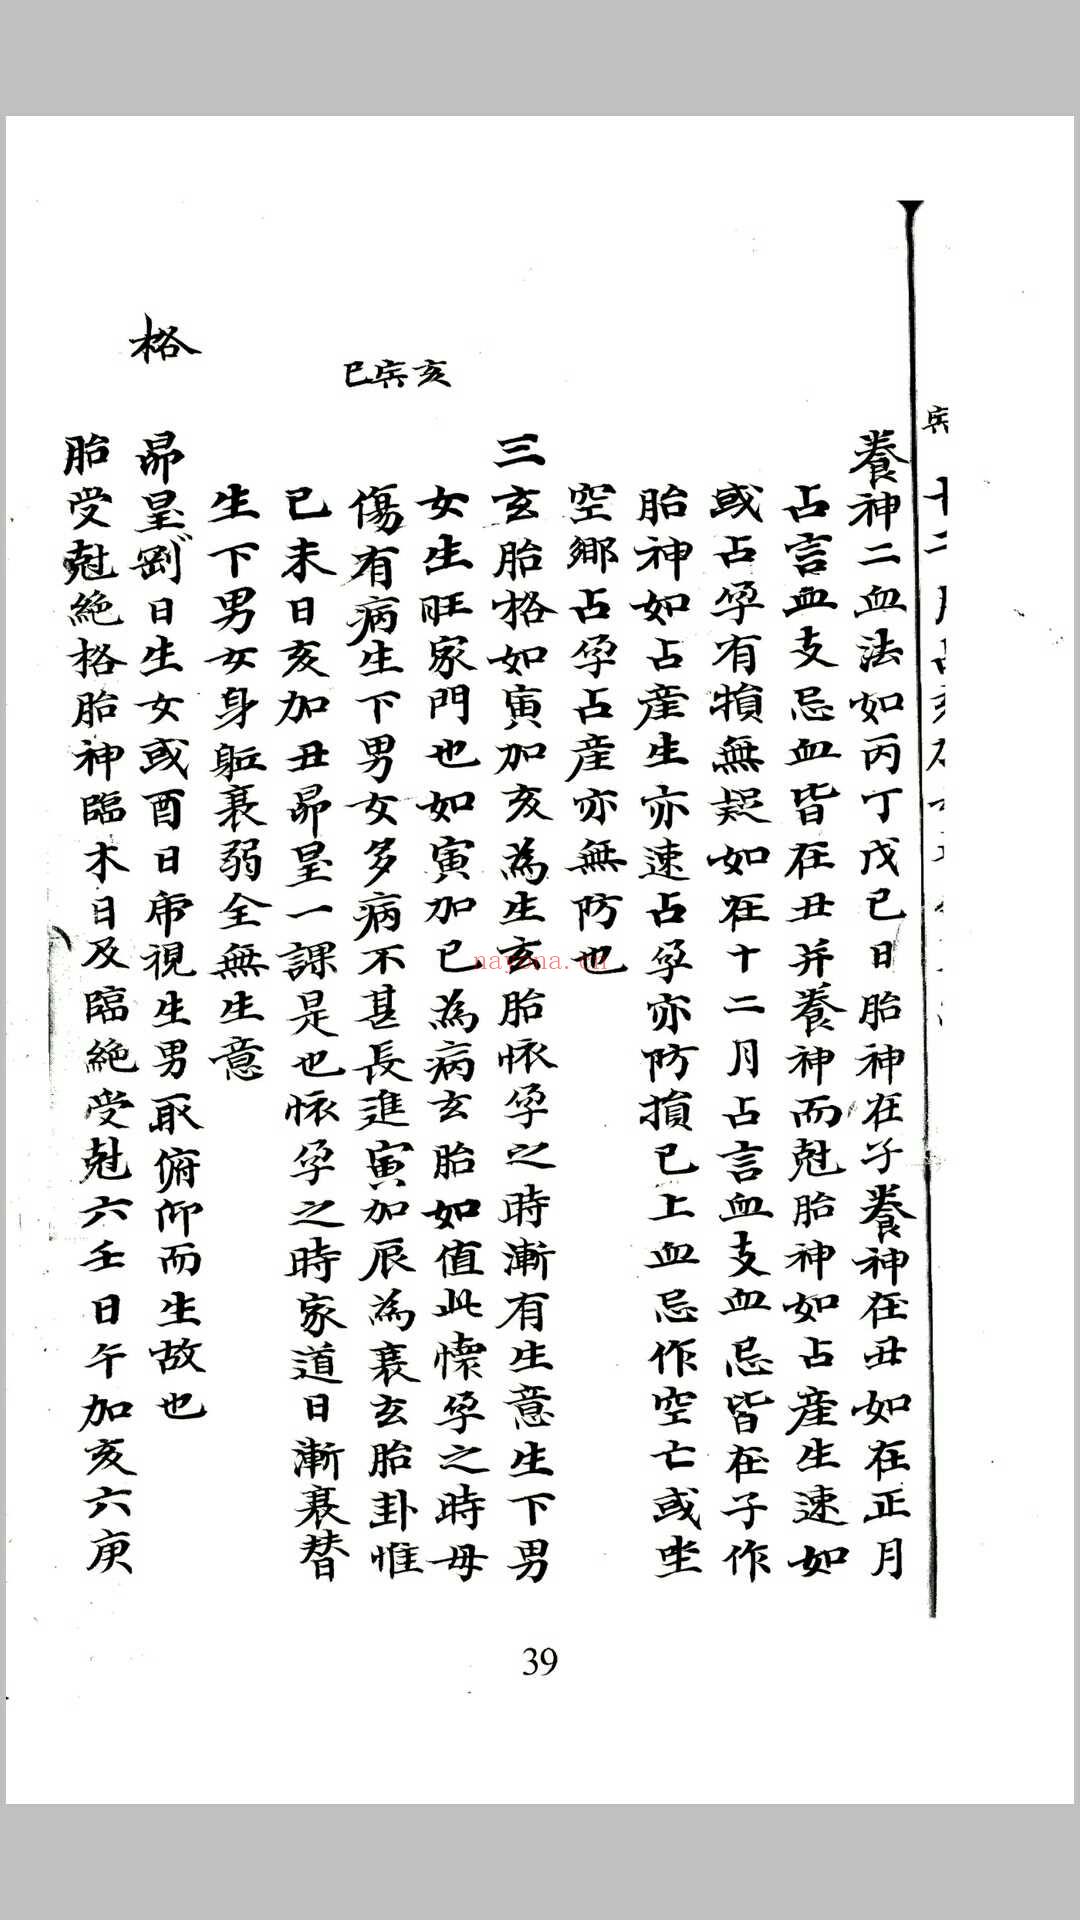 養神二血法如丙丁戊己日胎神在子養神在丑如在正月
占言血支忌血皆在丑并養神而尅胎神如占産生速如
或占孕有損無疑如在十二月占言血支血忌皆在子作
胎神如占産生亦速占孕亦防損已上血忌作空亡或坐
空鄉占孕占産亦無防也
三玄胎格如寅加亥為生玄胎懷孕之時漸有生意生下男
亥宾巳
女生旺家門也如寅加巳為病玄胎如值此懷孕之時母
傷有病生下男女多病不甚長進寅加辰為衰玄胎卦惟
己未日亥加丑昴星一課是也懷孕之時家道日漸衰替
生下男女身軀衰弱全無生意
格
昴星剛日生女或酉日虎視生男取俯仰而生故也
胎受尅絶格胎神臨木日及臨絶受尅六壬日午加亥六庚
39
nayona.cn